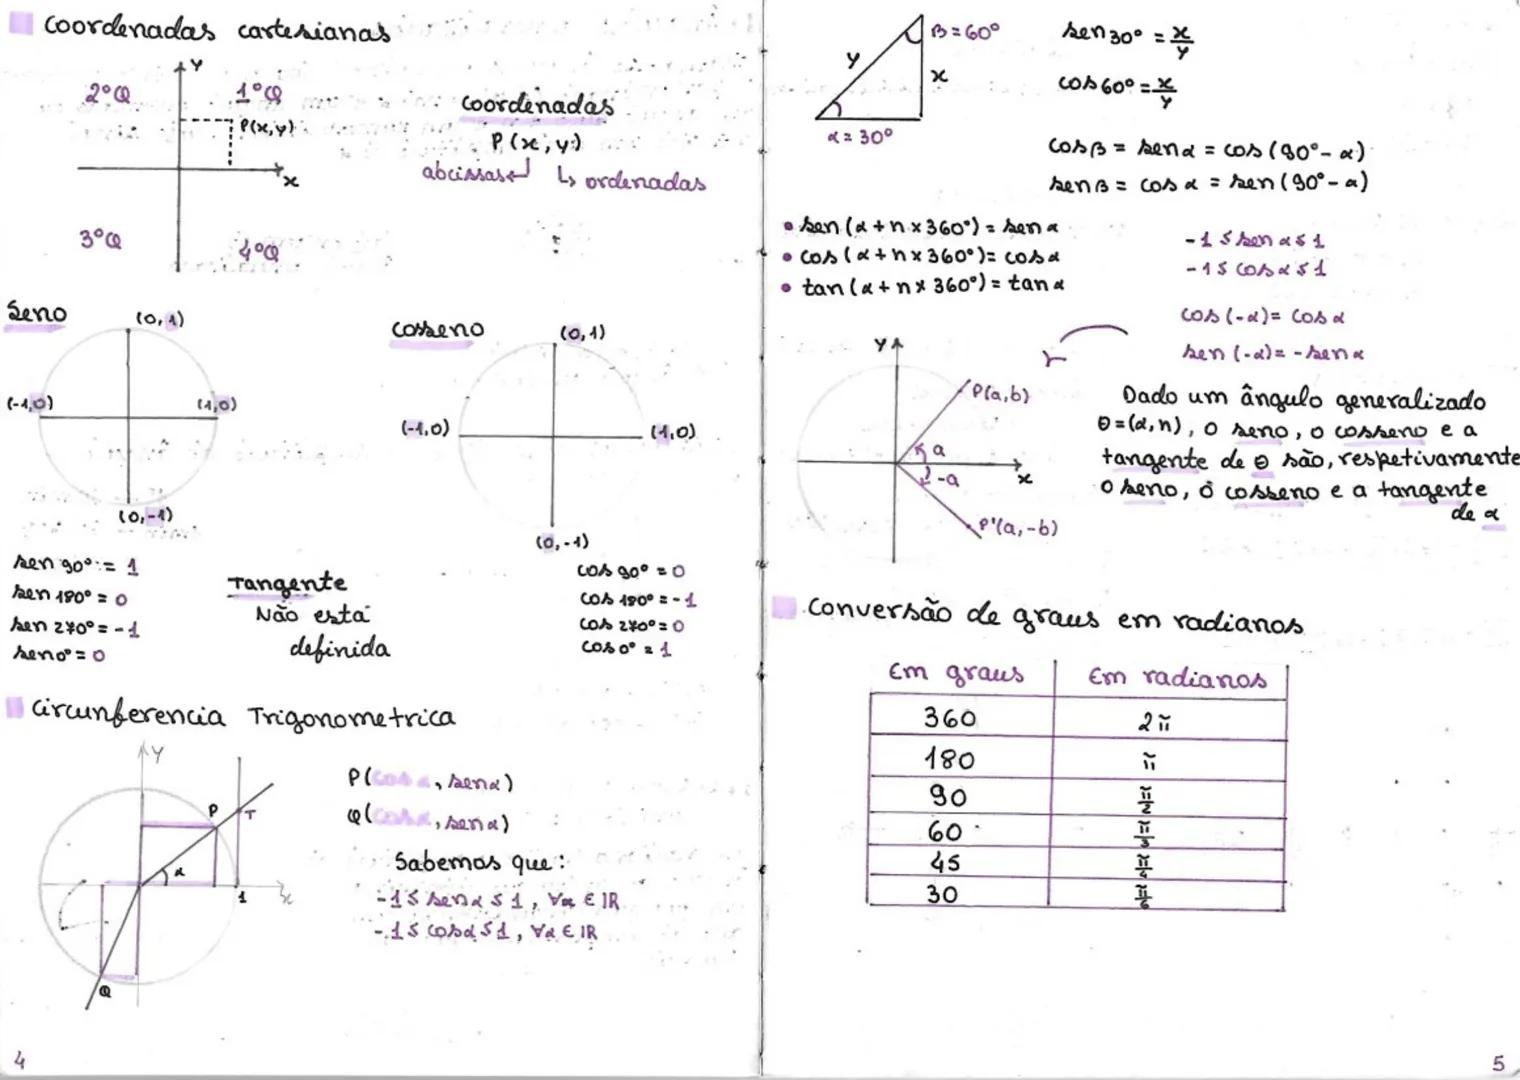 Coordenadas cartesianas
y
2ºQ
1ºQ
P(x,y)
x
3ºQ
4ºQ
Coordenadas
P (x, y)
abcissas
ordenadas
Seno
(0,1)
(-1,0)
(1,0)
(0,-1)
Cosseno
(0,1)
(-1,0)
(1,0)
(0,-1)
sen 90º = 1
sen 180º = 0
sen 270º = -1
sen 0º = 0
Tangente
Não está
definida
cos 90º = 0
cos 180º = -1
cos 270º = 0
cos 0º = 1
Circunferencia Trigonometrica
y
P
T
α
1
x
Q
P(cos α, sen α)
Q(cos α, sen α)
Sabemos que:
-1 ≤ sen α ≤ 1, ∀α ∈ IR
-1 ≤ cos α ≤ 1, ∀α ∈ IR
4
β = 60º
y
x
α = 30º
sen 30º = x/y
cos 60º = x/y
cos β = sen α = cos (90º - α)
sen β = cos α = sen (90º - α)
• sen (α + n x 360º) = sen α
• cos (α + n x 360º) = cos α
• tan (α + n x 360º) = tan α
-1 ≤ sen α ≤ 1
-1 ≤ cos α ≤ 1
cos (-α) = cos α
sen (-α) = - sen α
y
P(a,b)
a
-a
x
P'(a,-b)
Dado um ângulo generalizado
θ = (α, n), o seno, o cosseno e a
tangente de θ são, respetivamente
o seno, o cosseno e a tangente
de α
Conversão de graus em radianos
Em graus Em radianos
360 2π
180 π
90 π/2
60 π/3
45 π/4
30 π/6
5